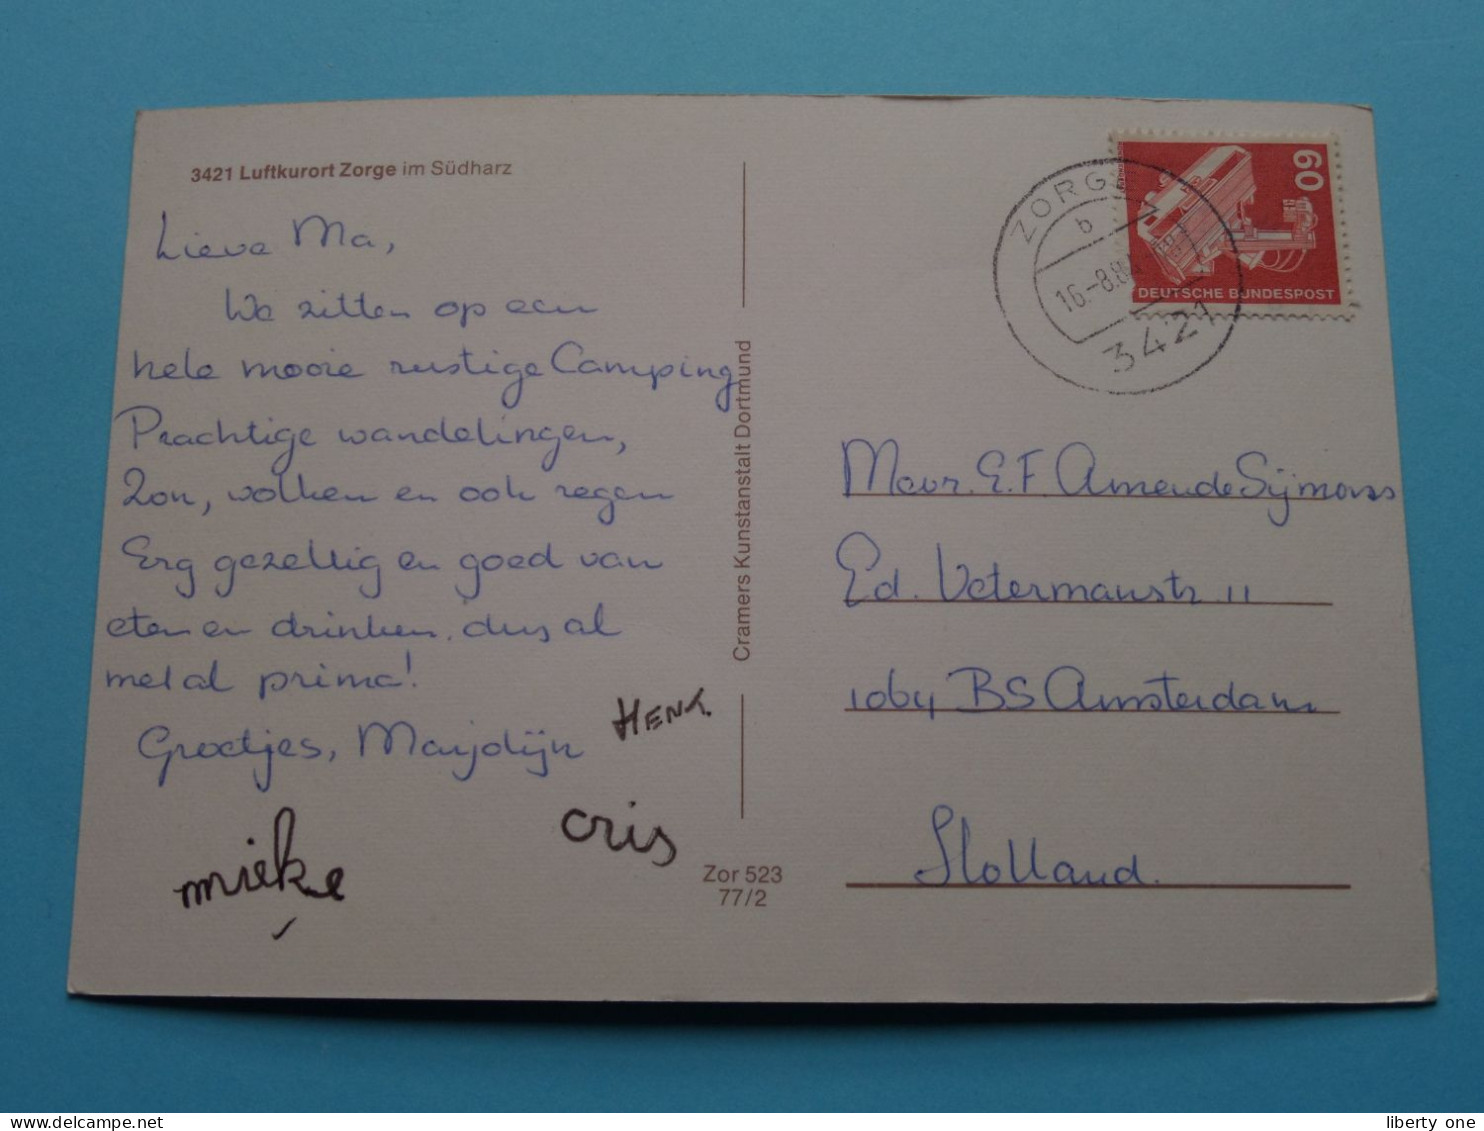 3421 Luftkurort Zorge im Südharz
Lieve Ma,
We zitten op een
hele mooie rustige Camping
Prachtige wandelingen,
Zon, wolken en ook regen
Erg gezellig en goed van
eten en drinken, dus al
met al prima!
Groetjes, Marjolijn
HENK.
cris
mieke
Cramers Kunstanstalt Dortmund
Zor 523
77/2
ZORGE
b
16.-8.8
3421
60
DEUTSCHE BUNDESPOST
Mevr. E.F. Amende Sijmons
Ed. Vetermanstr 11
1064 BS Amsterdam
Holland.
liberty one